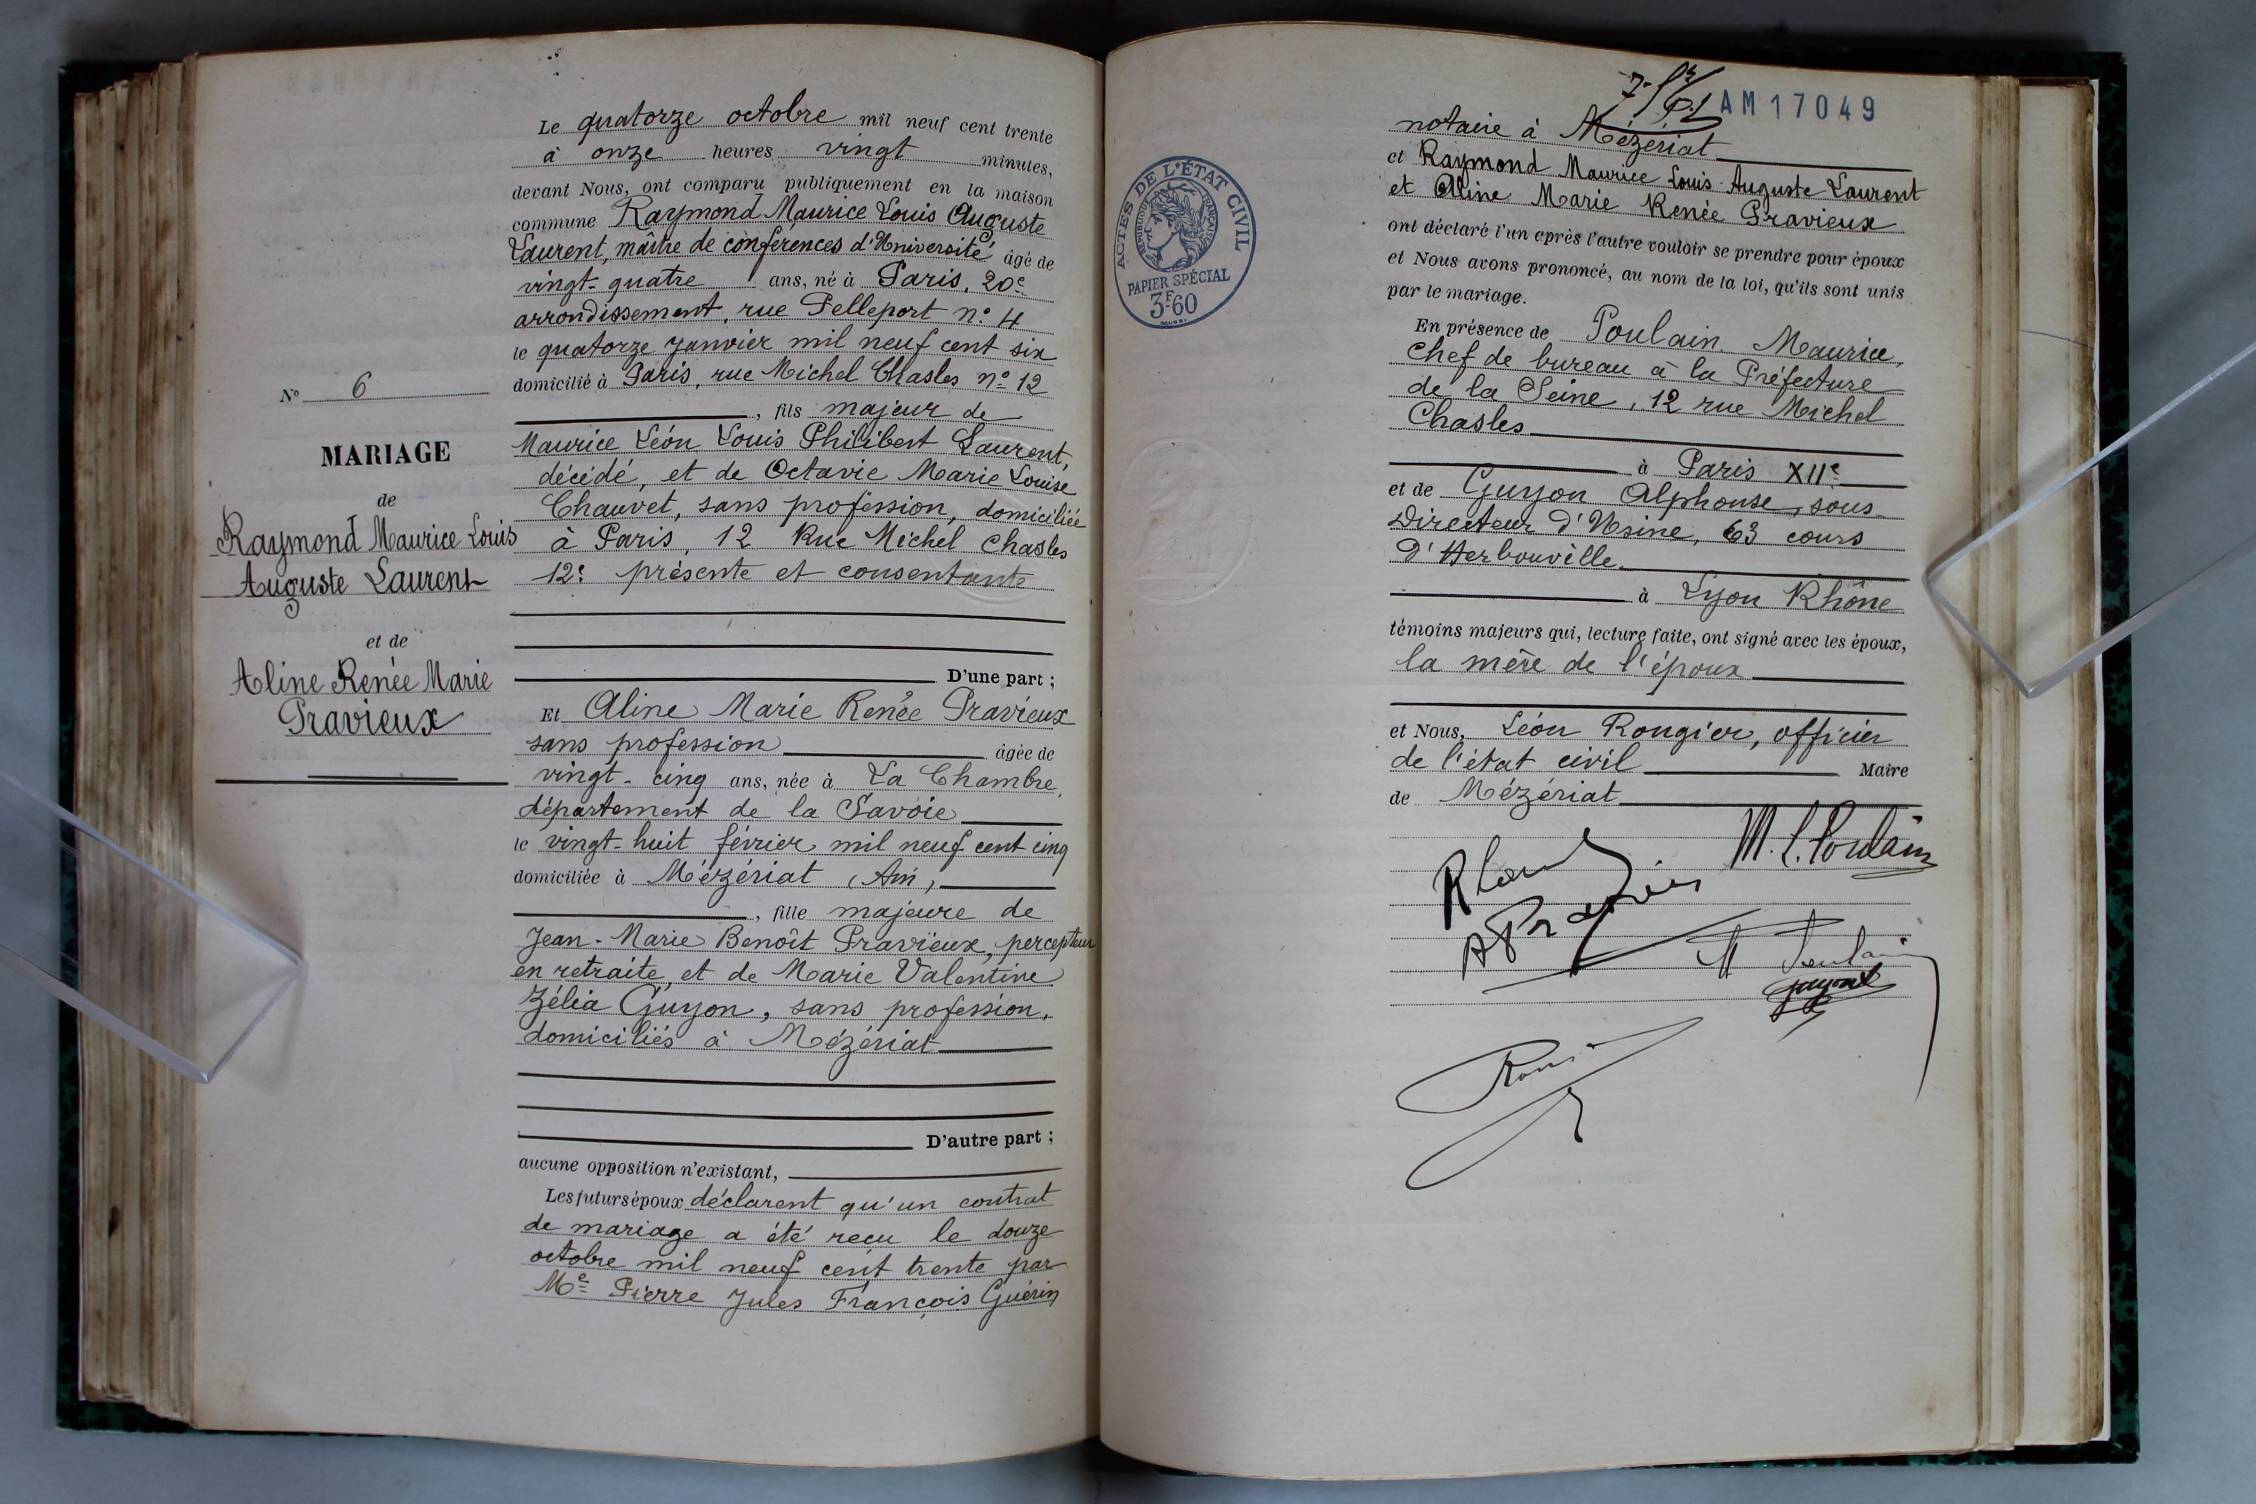 Le quatorze octobre mil neuf cent trente
à onze heures vingt minutes,
devant Nous, ont comparu publiquement en la maison
commune Raymond Maurice Louis Auguste
Laurent, maître de conférences d'Université âgé de
vingt-quatre ans, né à Paris, 20e
arrondissement, rue Pelleport n° 4
le quatorze janvier mil neuf cent six
domicilié à Paris, rue Michel Chasles n° 12
, fils majeur de
Maurice Léon Louis Philibert Laurent,
décédé, et de Octavie Marie Louise
Chauvet, sans profession, domiciliée
à Paris, 12 Rue Michel Chasles
12e présente et consentante
D'une part ;
Et Aline Marie Renée Pravieux
sans profession âgée de
vingt-cinq ans, née à La Chambre,
département de la Savoie
le vingt-huit février mil neuf cent cinq
domiciliée à Mézériat (Ain),
, fille majeure de
Jean-Marie Benoît Pravieux, percepteur
en retraite, et de Marie Valentine
Zélia Guyon, sans profession,
domiciliés à Mézériat
D'autre part ;
aucune opposition n'existant,
Les futurs époux déclarent qu'un contrat
de mariage a été reçu le douze
octobre mil neuf cent trente par
Me Pierre Jules François Guérin
N° 6
MARIAGE
de
Raymond Maurice Louis
Auguste Laurent
et de
Aline Renée Marie
Pravieux
AM 17049
notaire à Mézériat
et Raymond Maurice Louis Auguste Laurent
et Aline Marie Renée Pravieux
ont déclaré l'un après l'autre vouloir se prendre pour époux
et Nous avons prononcé, au nom de la loi, qu'ils sont unis
par le mariage.
En présence de Poulain Maurice,
chef de bureau à la Préfecture
de la Seine, 12 rue Michel
Chasles
à Paris XIIe
et de Guyon Alphonse, sous
Directeur d'Usine, 63 cours
D'Herbouville.
à Lyon Rhône
témoins majeurs qui, lecture faite, ont signé avec les époux,
la mère de l'époux
et Nous, Léon Rougier, officier
de l'état civil Maire
de Mézériat
M. L. Poulain
A Pravieux
M Poulain
Guyon
ACTES DE L'ÉTAT CIVIL
RÉPUBLIQUE FRANÇAISE
PAPIER SPÉCIAL
3F60